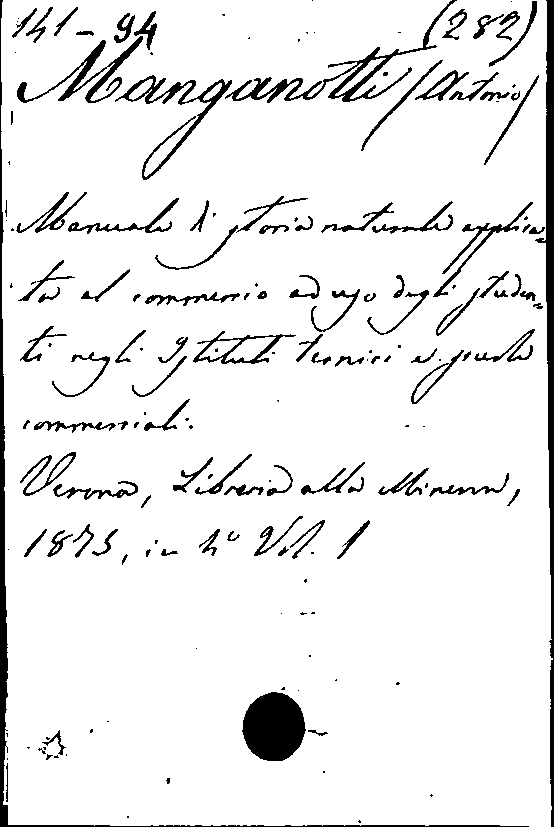 141-94 (282)
Manganotti (Antonio)
Manuale di storia naturale applica-
ta al commercio ad uso degli studen-
ti negli Istituti tecnici e scuole
commerciali.
Verona, Libreria alla Minerva,
1873, in 4° Vol. 1